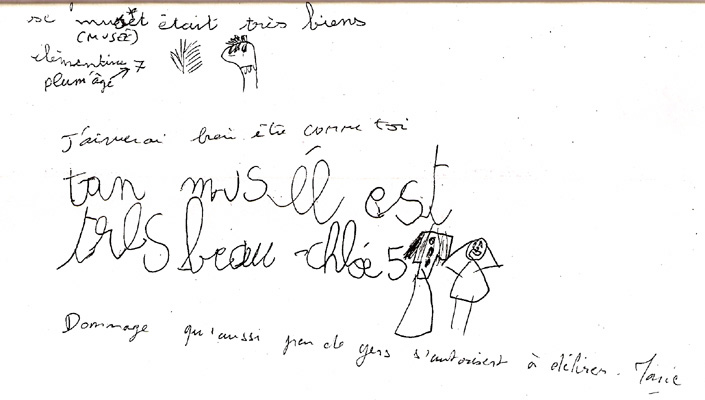 se muset était très biens
(MUSÉE)
clémentine 7
plum'âge
J'aimerai bien être comme toi
tan muséé est
tres beau chloé 5
Dommage qu'aussi peu de gens s'autorisent à délirer. Marie